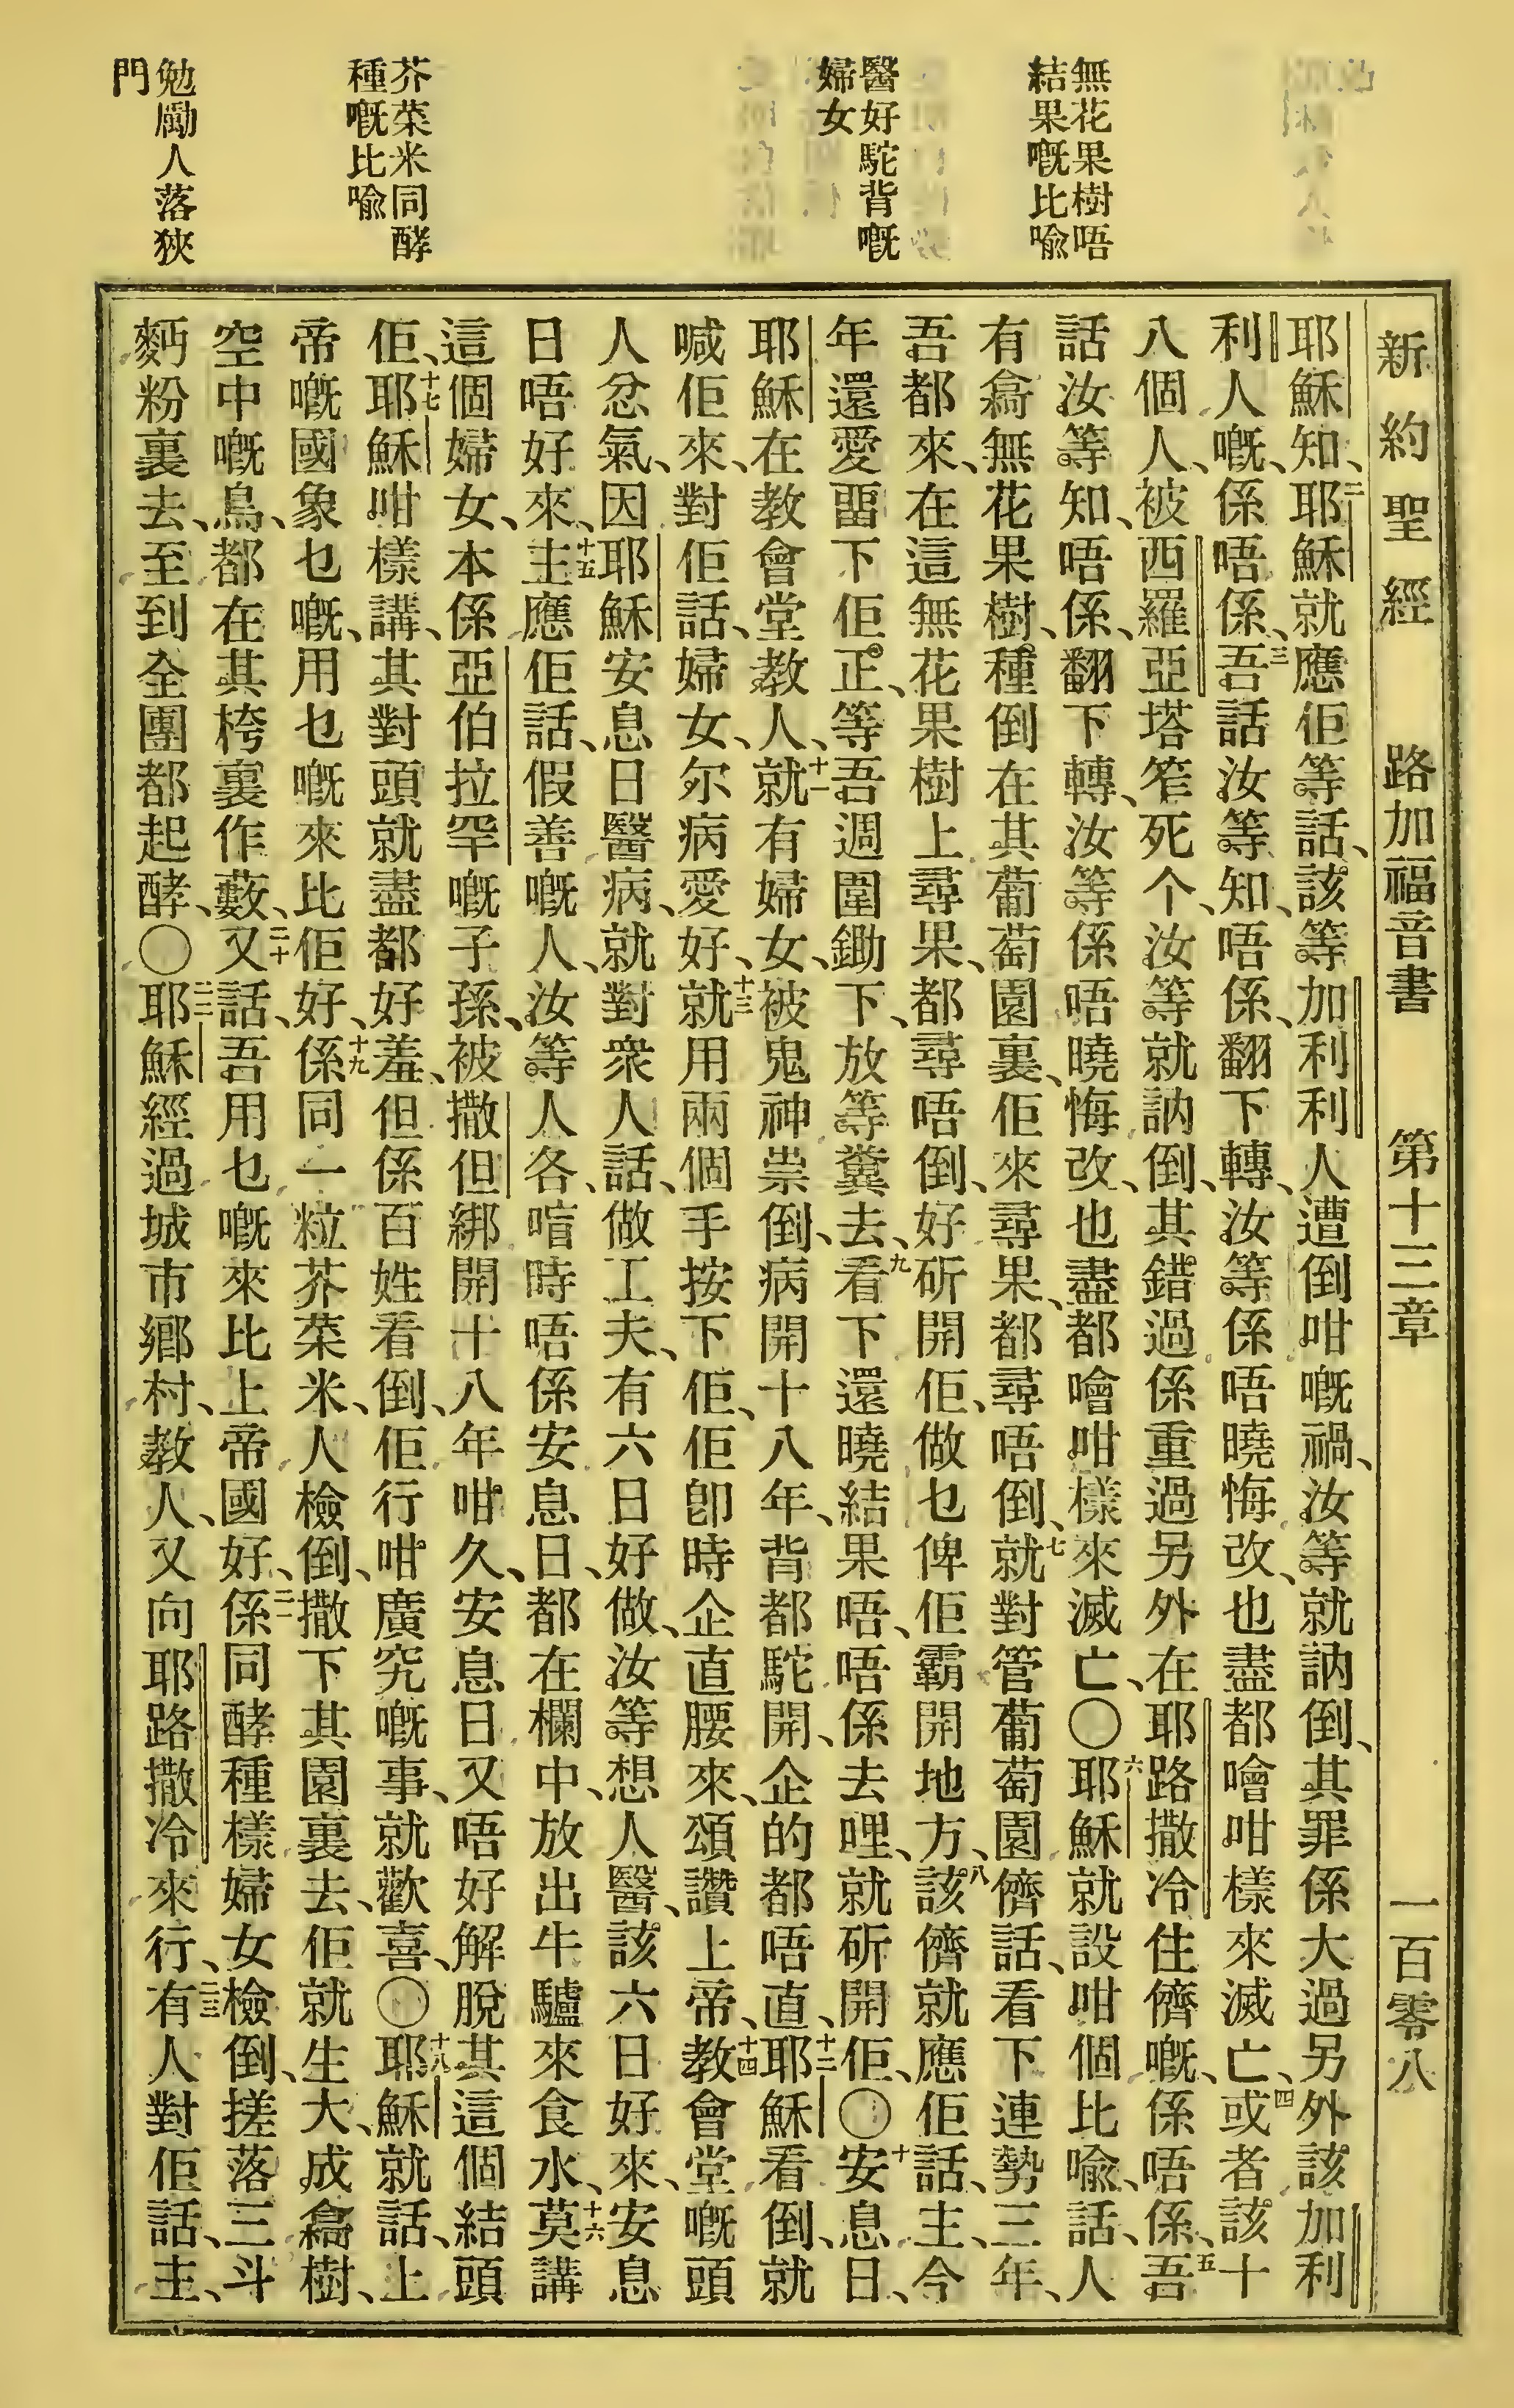 新約聖經 路加福音書 第十三章 一百零八
無花果樹唔
結果嘅比喩
醫好駝背嘅
婦女
芥菜米同酵
種嘅比喩
勉勵人落狹
門
耶穌知、二耶穌就應佢等話、該等加利利人遭倒咁嘅禍、汝等就訥倒、其罪係大過另外該加利
利人嘅、係唔係、三吾話汝等知、唔係、翻下轉、汝等係唔曉悔改、也盡都噲咁樣來滅亡、四或者該十
八個人、被西羅亞塔笮死个、汝等就訥倒、其錯過係重過另外在耶路撒冷住儕嘅、係唔係、五吾
話汝等知、唔係、翻下轉、汝等係唔曉悔改、也盡都噲咁樣來滅亡、〇六耶穌就設咁個比喩、話、人
有翕無花果樹、種倒在其葡萄園裏、佢來尋果、都尋唔倒、七就對管葡萄園儕話、看下連勢三年、
吾都來、在這無花果樹上尋果、都尋唔倒、好斫開佢、做乜俾佢霸開地方、八該儕就應佢話、主、今
年還愛畱下佢正、等吾週圍鋤下、放等糞去、九看下還曉結果唔、唔係去哩、就斫開佢、〇十安息日、
耶穌在教會堂教人、十一就有婦女、被鬼神祟倒、病開十八年、背都駝開、企的都唔直、十二耶穌看倒、就
喊佢來、對佢話、婦女、尔病愛好、十三就用兩個手按下佢、佢卽時企直腰來、頌讚上帝、十四教會堂嘅頭
人忿氣、因耶穌安息日醫病、就對衆人話、做工夫、有六日好做、汝等想人醫、該六日好來、安息
日唔好來、十五主應佢話、假善嘅人、汝等人各、喑時唔係安息日、都在欄中、放出牛驢來食水、十六莫講
這個婦女、本係亞伯拉罕嘅子孫、被撒但綁開十八年咁久、安息日又唔好解脫其這個結頭
佢、十七耶穌咁樣講、其對頭就盡都好羞、但係百姓看倒、佢行咁廣究嘅事、就歡喜、〇十八耶穌就話、上
帝嘅國象乜嘅、用乜嘅來比佢好、十九係同一粒芥菜米、人檢倒、撒下其園裏去、佢就生大、成翕樹、
空中嘅鳥、都在其桍裏作藪、二十又話、吾用乜嘅來比上帝國好、二一係同酵種樣、婦女檢倒、搓落三斗
麪粉裏去、至到全團都起酵、〇二二耶穌經過城市鄉村、教人、又向耶路撒冷來行、二三有人對佢話、主、